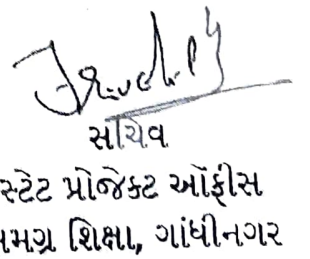 સચિવ
સ્ટેટ પ્રોજેક્ટ ઓફીસ
સમગ્ર શિક્ષા, ગાંધીનગર